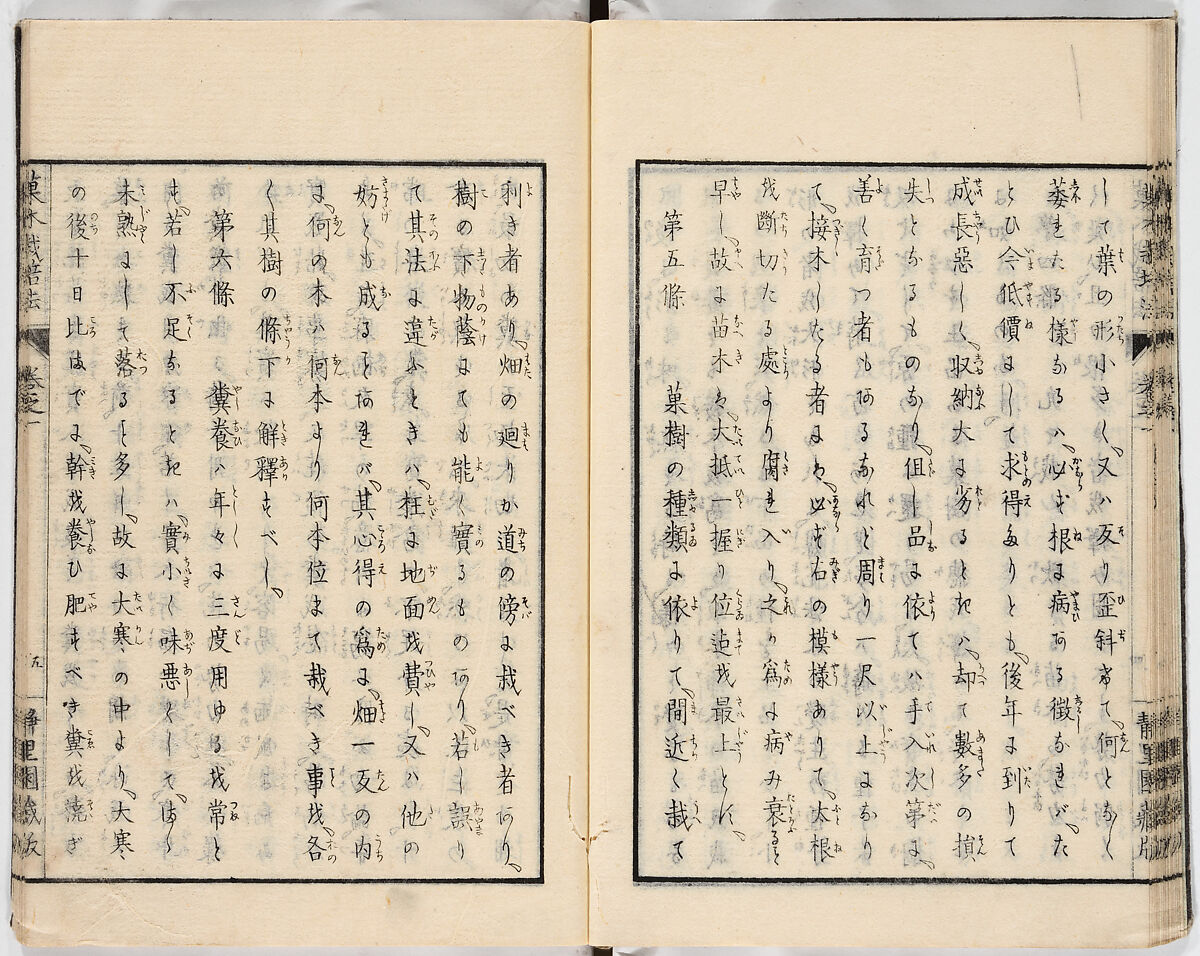 して葉の形小さく、又ハ反り歪斜みて、何となく
萎れたる様なるハ、必ず根に病ある徴なれバ、た
とひ今低價にして求得たりとも、後年に到りて
成長惡しく、収納大に劣るときハ、却て數多の損
失となるものなり、但し品に依てハ手入次第に、
善く育つ者もあるなれど周り一尺以上になり
て、接木したる者にハ、必ず右の模樣ありて、太根
を斷切たる處より腐れ入り、之が爲に病み衰ると
早し、故に苗木ハ、大抵一握り位迄を最上とに、
第五條　菓樹の種類に依りて、間近く栽る
利き者あり、畑の廻りか道の傍に栽べき者あり、
樹の下物蔭にても能く實るものあり、若し誤り
て其法に違ふときハ、枉に地面を費し、又ハ他の
妨とも成ることあれバ、其心得の爲に、畑一反の内
に、何の木ハ何本より何本位まて栽べき事を、各
く其樹の條下に解釋すべし、
第六條　糞養ハ年々に三度用ゆるを常と
す、若し不足なるときハ、實小く味惡くして、
未熟にして落ると多し、故に大寒の中より、大寒
の後十日比までに、幹を養ひ肥すべき糞を澆ぎ
菓木栽培法　卷之一　五　靜里園藏版